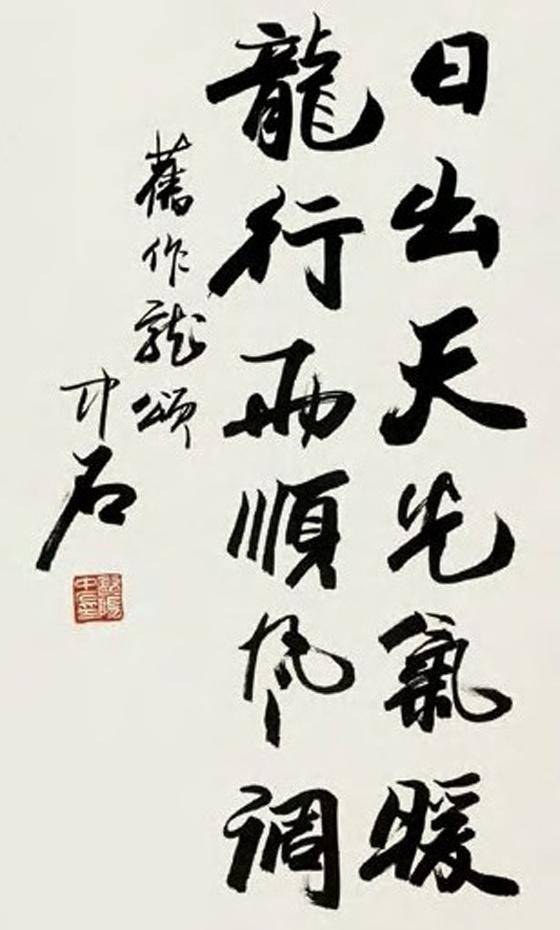 日出天光氣暖
龍行雨順風調
舊作龍頌
中石
歐陽中石